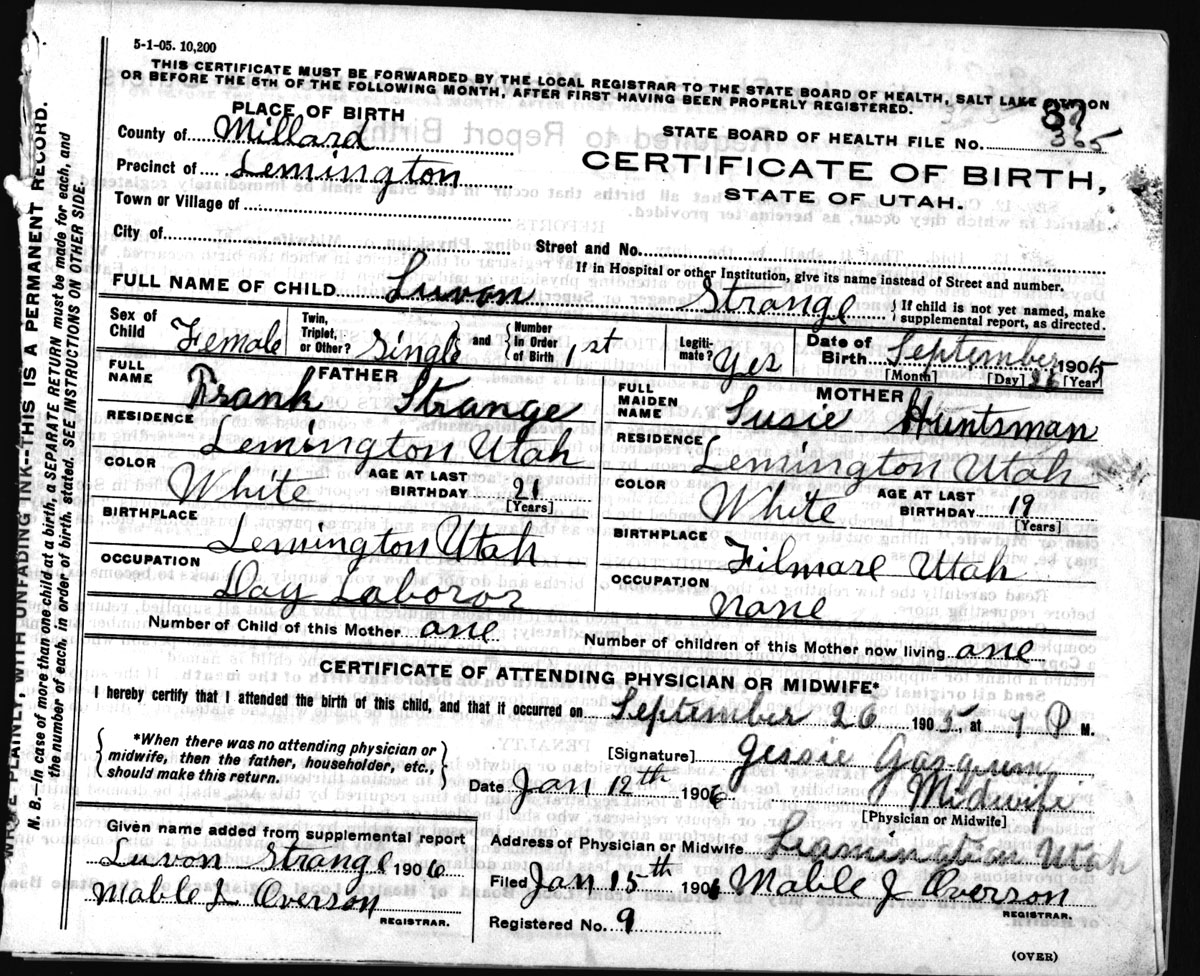 5-1-05. 10,200
THIS CERTIFICATE MUST BE FORWARDED BY THE LOCAL REGISTRAR TO THE STATE BOARD OF HEALTH, SALT LAKE CITY, ON
OR BEFORE THE 5TH OF THE FOLLOWING MONTH, AFTER FIRST HAVING BEEN PROPERLY REGISTERED.
PLACE OF BIRTH
County of Millard
Precinct of Lemington
Town or Village of
City of
STATE BOARD OF HEALTH FILE No. 365
CERTIFICATE OF BIRTH,
STATE OF UTAH.
Street and No.
If in Hospital or other Institution, give its name instead of Street and number.
FULL NAME OF CHILD Luvon Strange { If child is not yet named, make supplemental report, as directed.
Sex of Child Female
Twin, Triplet, or Other? Single } and { Number In Order of Birth 1st
Legitimate? Yes
Date of Birth September 26 1905
[Month] [Day] [Year]
FATHER
FULL NAME Frank Strange
RESIDENCE Lemington Utah
COLOR White AGE AT LAST BIRTHDAY 21
[Years]
BIRTHPLACE Lemington Utah
OCCUPATION Day Laboror
MOTHER
FULL MAIDEN NAME Susie Huntsman
RESIDENCE Lemington Utah
COLOR White AGE AT LAST BIRTHDAY 19
[Years]
BIRTHPLACE Filmare Utah
OCCUPATION none
Number of Child of this Mother one Number of children of this Mother now living one
CERTIFICATE OF ATTENDING PHYSICIAN OR MIDWIFE*
I hereby certify that I attended the birth of this child, and that it occurred on September 26 1905, at 7 P M.
{ *When there was no attending physician or midwife, then the father, householder, etc., should make this return. }
[Signature] Jessie
Midwife
[Physician or Midwife]
Date Jan 12th 1906
Given name added from supplemental report
Luvon Strange 1906
Mable J Overson
REGISTRAR.
Address of Physician or Midwife Leamington Utah
Filed Jan 15th 1906 Mable J Overson
REGISTRAR.
Registered No. 9
(OVER)
WRITE PLAINLY, WITH UNFADING INK--THIS IS A PERMANENT RECORD.
N. B.--In case of more than one child at a birth, a SEPARATE RETURN must be made for each, and
the number of each, in order of birth, stated. SEE INSTRUCTIONS ON OTHER SIDE.